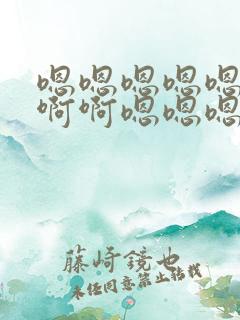 嗯嗯嗯嗯嗯
啊啊嗯嗯嗯
藤崎鏡也
未经同意禁止转载